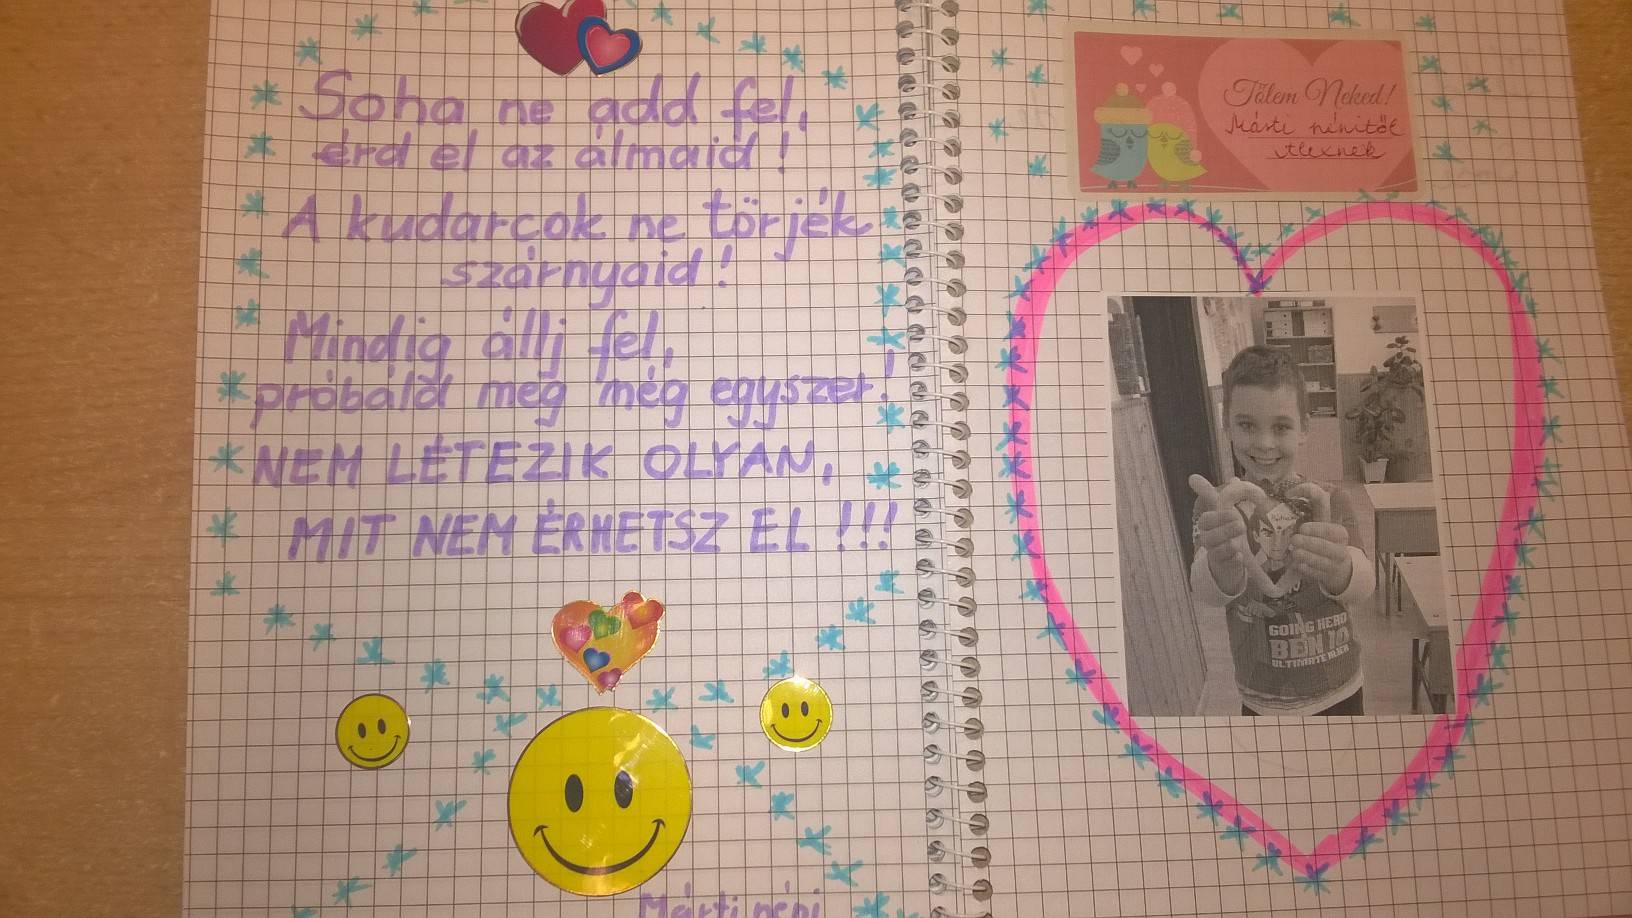 Soha ne add fel,
érd el az álmaid!
A kudarcok ne törjék
szárnyaid!
Mindig állj fel,
próbáld meg még egyszer!
NEM LÉTEZIK OLYAN,
MIT NEM ÉRHETSZ EL!!!
Márti néni
Tőlem Neked!
Márti nénitől
Alexnek
GOING HERO
BEN 10
ULTIMATE ALIEN